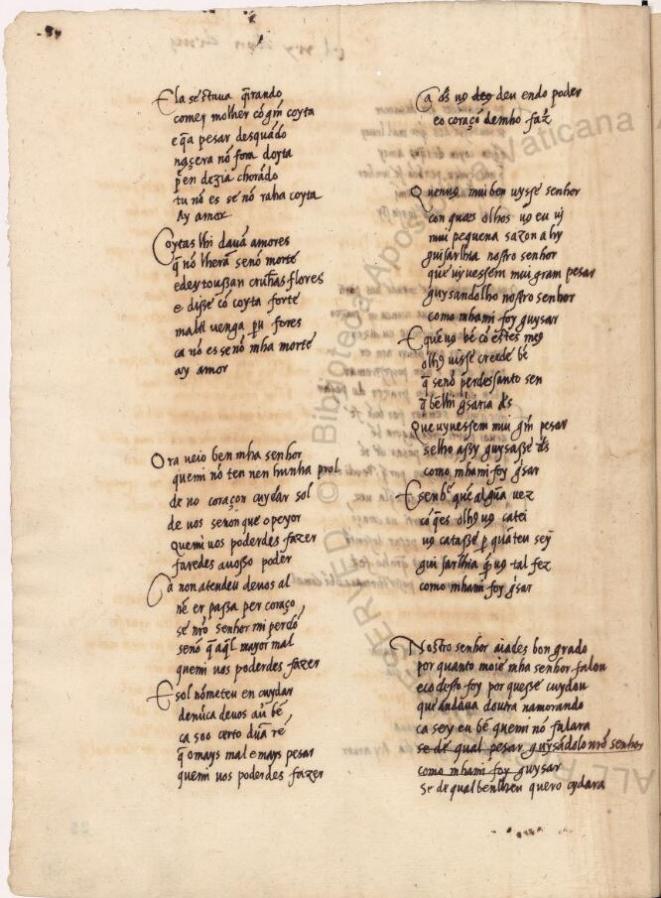 Ela sestaua q̄irando
come molher cõ grã coyta
e q̄a pesar desquãdo
naçera nõ fora doyta
pẽ en dezia chorãdo
tu nõ es se nõ mha coyta
Ay amor
Coytas lhi dauã amores
q̄ nõ lherã senõ morte
e deytoussan antr̃as flores
e disse cõ coyta forte
mal ti uenga pu fores
ca nõ es senõ mha morte
ay amor
Ora ueio ben mha senhor
quemi nõ ten nen hunha prol
de no coraçon cuydar sol
de uos senon que o peyor
quemi uos poderdes fazer
faredes auosso poder
Ca non atendeu deuos al
nẽ er passa per coraçõ
se nr̃o senhor mi perdõ
senõ q̄ aq̄l mayor mal
quemi uos poderdes fazer
E sol nõmeteu en cuydar
denũca deuos auer bẽ
ca soo certo dũa rẽ
q̄ omays mal e mays pesar
quemi uos poderdes fazer
Ca d̃s uꝯ deu endo poder
eo coraçõ demho faz̃
Quenuꝯ mui ben uysse senhor
con quaes olhos uꝯ eu ui
mui pequena sazon a hy
guisarlhia nostro senhor
que uyuessem mui gram pesar
guysandolho nostro senhor
como mhami foy guysar
E quẽ uꝯ bẽ cõ estes meꝯ
olhꝯ uisse creede bẽ
q̄ senõ perdess anto sen
q̄ bẽ lhi g̃saria d̃s
Que uyuessem mui grã pesar
selho assy guysasse d̃s
como mhami foy g̃sar
E senhor que algũa uez
cõ q̄es olhꝯ uꝯ catei
uꝯ catasse p̱ quãteu sey
guisarlhia q̄ uꝯ tal fez
como mhami foy g̃sar
Nostro senhor aiades bon grado
por quanto moie mha senhor falou
e todesto foy por quesse cuydou
que andaua doutra namorando
ca sey eu bẽ quemi nõ falara
se de qual pesar guysãdolo nr̃o senhor
como mhami foy guysar
se de qual ben lheu quero cydara